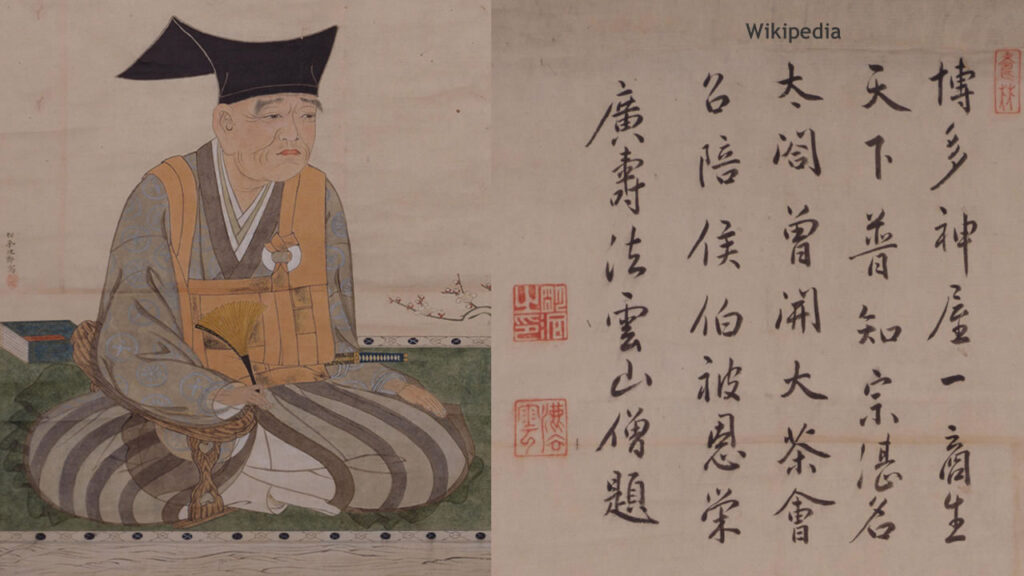 Wikipedia
博多神屋一商生
天下普知宗湛名
太閤曽開大茶會
召陪侯伯被恩栄
廣壽法雲山僧題